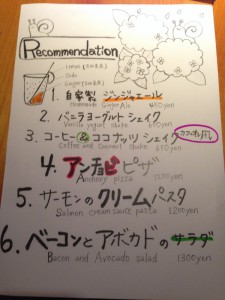 Recommendation
Lemon
Soda
Ginger
1. 自家製 ジンジャエール
Homemade Ginger Ale 450yen
2. バニラヨーグルト シェイク
Vanilla yogurt shake
3. コーヒー&ココナッツ シェイク
Coffee and Coconut shake 650yen
4. アンチョビ ピザ
Anchovy pizza
5. サーモンのクリームパスタ
Salmon cream sauce pasta 1200yen
6. ベーコンとアボカドのサラダ
Bacon and Avocado salad 1300yen